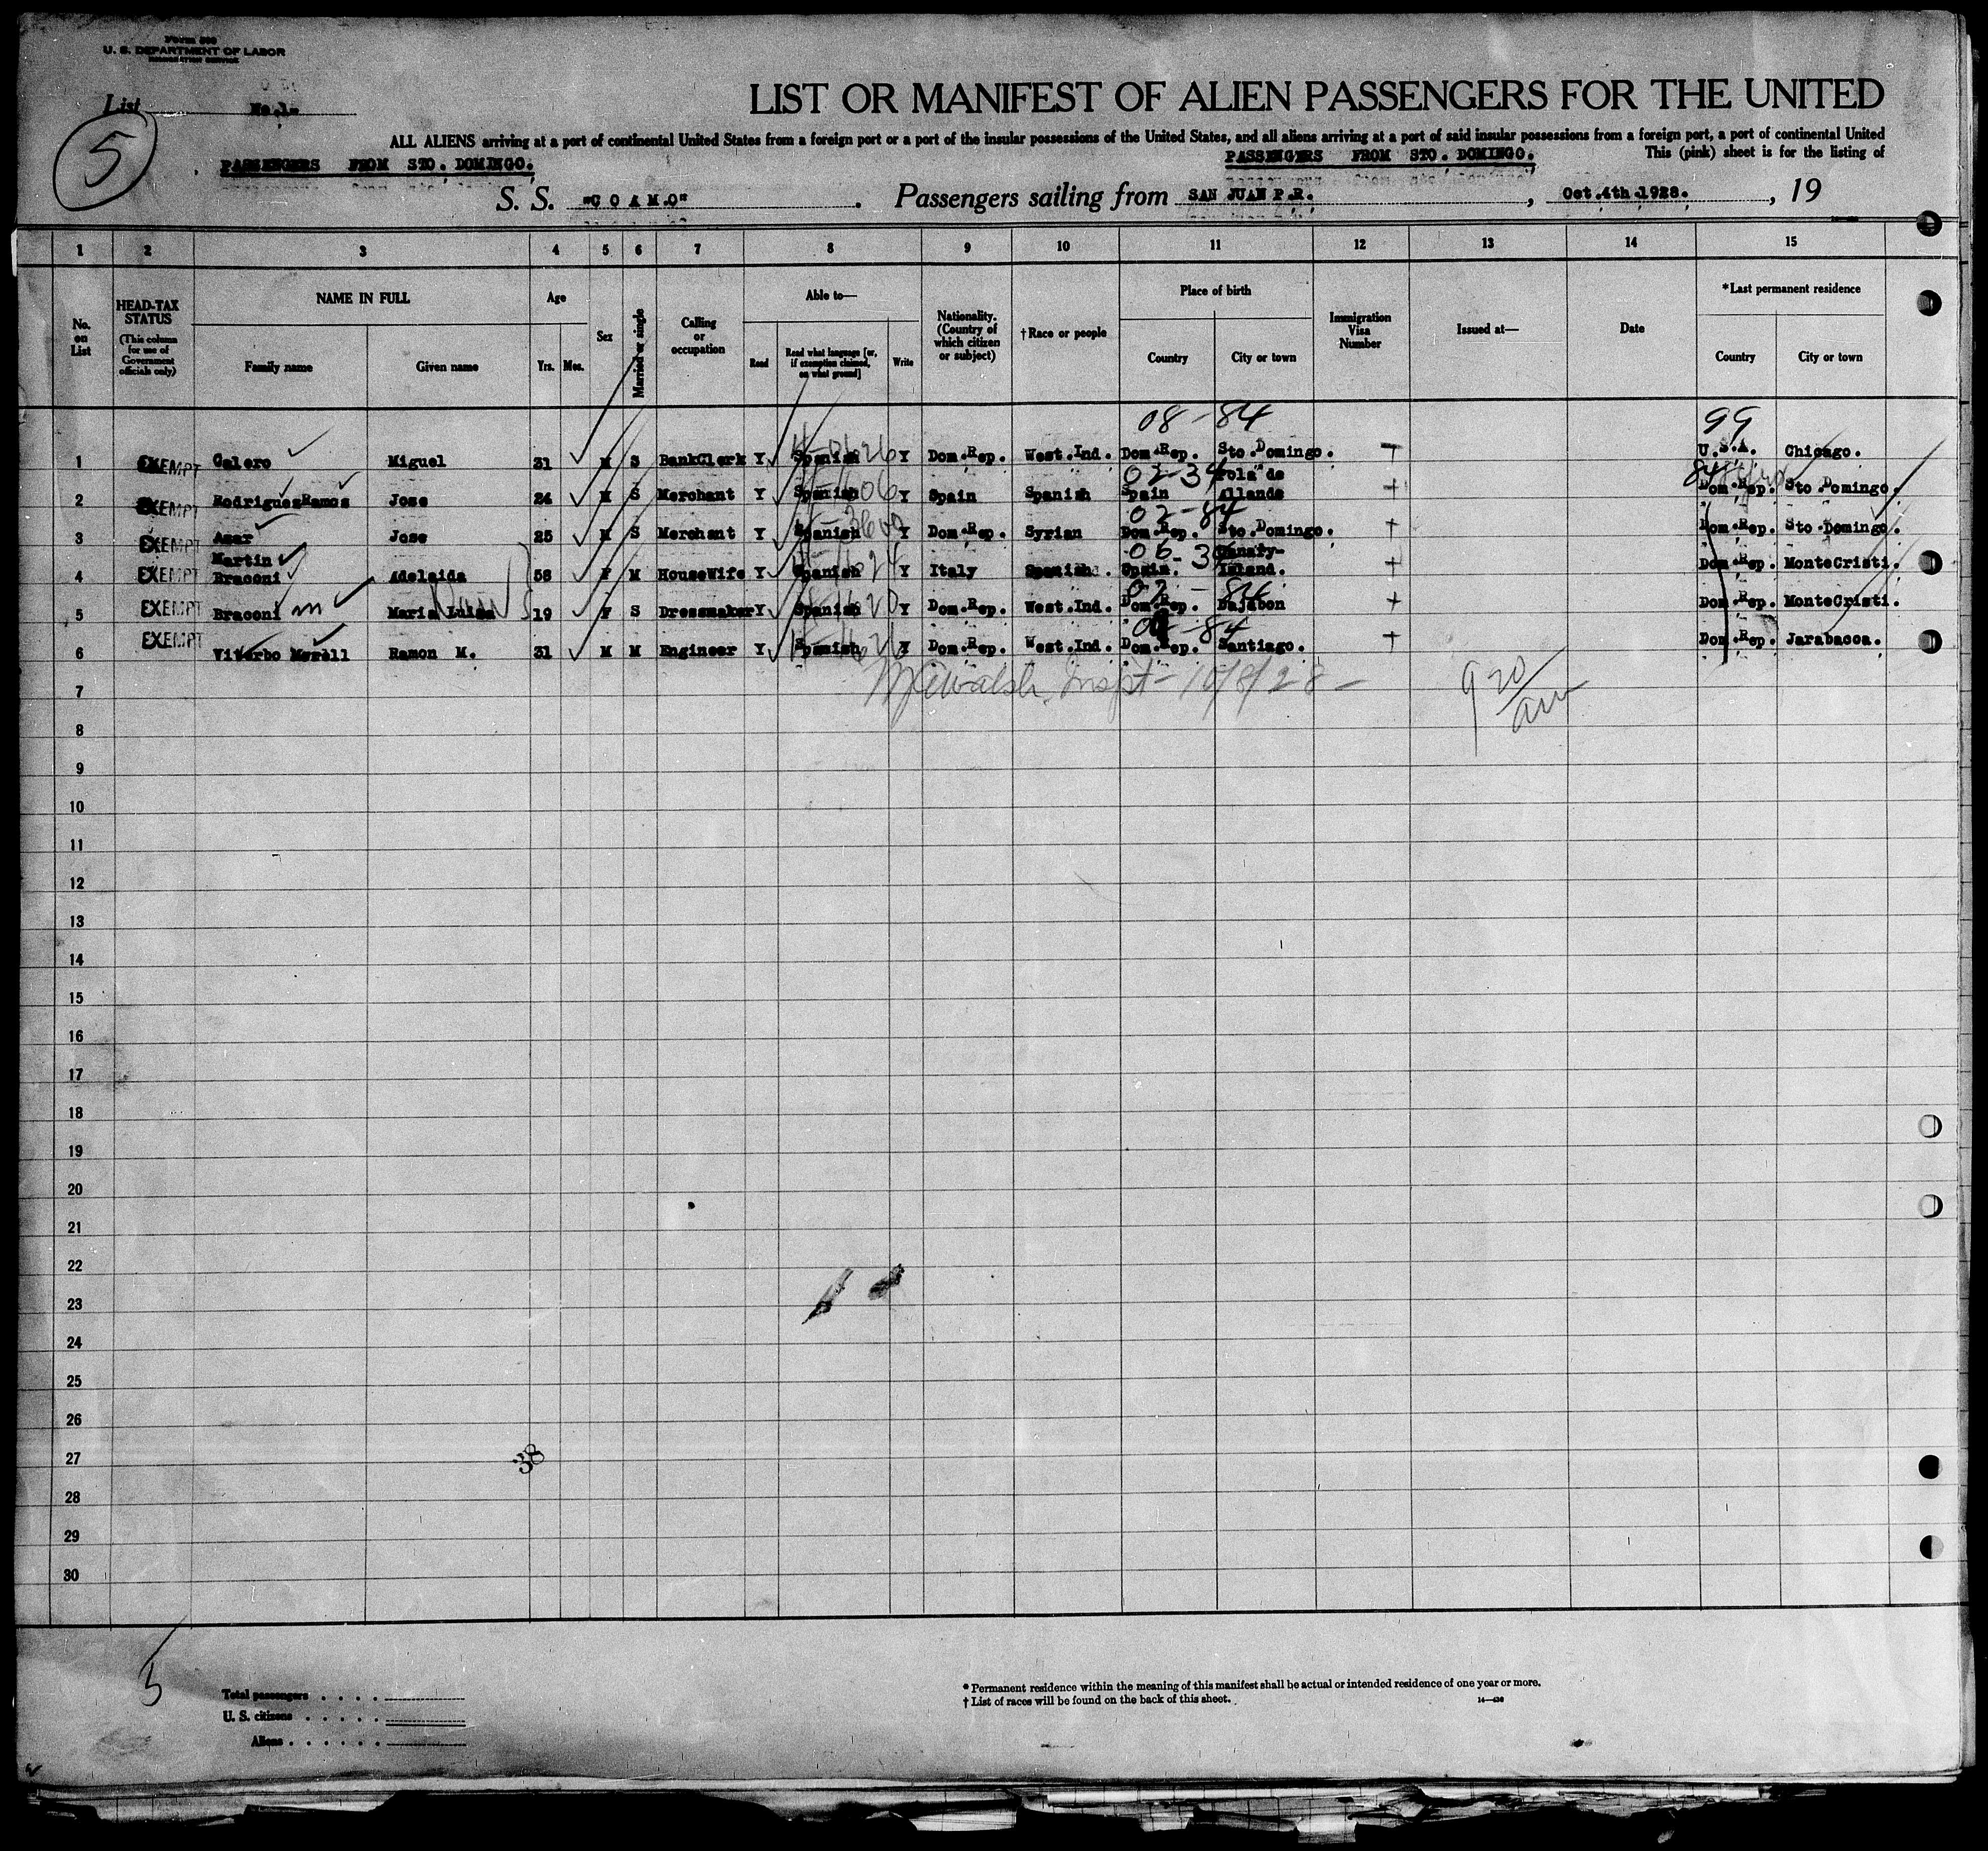 Form 500
U. S. DEPARTMENT OF LABOR
IMMIGRATION SERVICE
List No.1-
5
LIST OR MANIFEST OF ALIEN PASSENGERS FOR THE UNITED
ALL ALIENS arriving at a port of continental United States from a foreign port or a port of the insular possessions of the United States, and all aliens arriving at a port of said insular possessions from a foreign port, a port of continental United
PASSENGERS FROM STO. DOMINGO. PASSENGERS FROM STO. DOMINGO. This (pink) sheet is for the listing of
S. S. "COAMO" . Passengers sailing from SAN JUAN P.R. , Oct.4th.1928. , 19
1 2 3 4 5 6 7 8 9 10 11 12 13 14 15
No. on List
HEAD-TAX STATUS
(This column for use of Government officials only)
NAME IN FULL
Family name Given name
Age
Yrs. Mos.
Sex
Married or single
Calling or occupation
Able to—
Read
Read what language [or, if exemption claimed, on what ground]
Write
Nationality. (Country of which citizen or subject)
†Race or people
Place of birth
Country City or town
Immigration Visa Number
Issued at—
Date
*Last permanent residence
Country City or town
08-84 99
1 EXEMPT Galero Miguel 31 M S BankClerk Y Spanish Y Dom.Rep. West.Ind. Dom.Rep. Sto.Domingo. U.S.A. Chicago.
02-34 84
2 EXEMPT RodriguesRamos Jose 24 M S Merchant Y Spanish Y Spain Spanish Spain Pola de Allande Dom.Rep. Sto Domingo.
02-84
3 EXEMPT Azar Jose 25 M S Merchant Y Spanish Y Dom.Rep. Syrian Dom.Rep. Sto.Domingo. Dom.Rep. Sto Domingo.
06-34
4 EXEMPT Martin Braconi Adelaida 58 F M HouseWife Y Spanish Y Italy Spanish. Spain. Canary-Island. Dom.Rep. MonteCristi.
02-84
5 EXEMPT Braconi m Maria Luisa 19 F S Dressmaker Y Spanish Y Dom.Rep. West.Ind. Dom.Rep. Dajabon Dom.Rep. MonteCristi.
02-84
6 EXEMPT Viterbo Morell Ramon M. 31 M M Engineer Y Spanish Y Dom.Rep. West.Ind. Dom.Rep. Santiago. Dom.Rep. Jarabacoa.
Walsh Inspt- 10/8/28-
920/am
7
8
9
10
11
12
13
14
15
16
17
18
19
20
21
22
23
24
25
26
27 38
28
29
30
5
Total passengers . . . .
U. S. citizens . . . . .
Aliens . . . . . .
* Permanent residence within the meaning of this manifest shall be actual or intended residence of one year or more.
† List of races will be found on the back of this sheet.
14—430